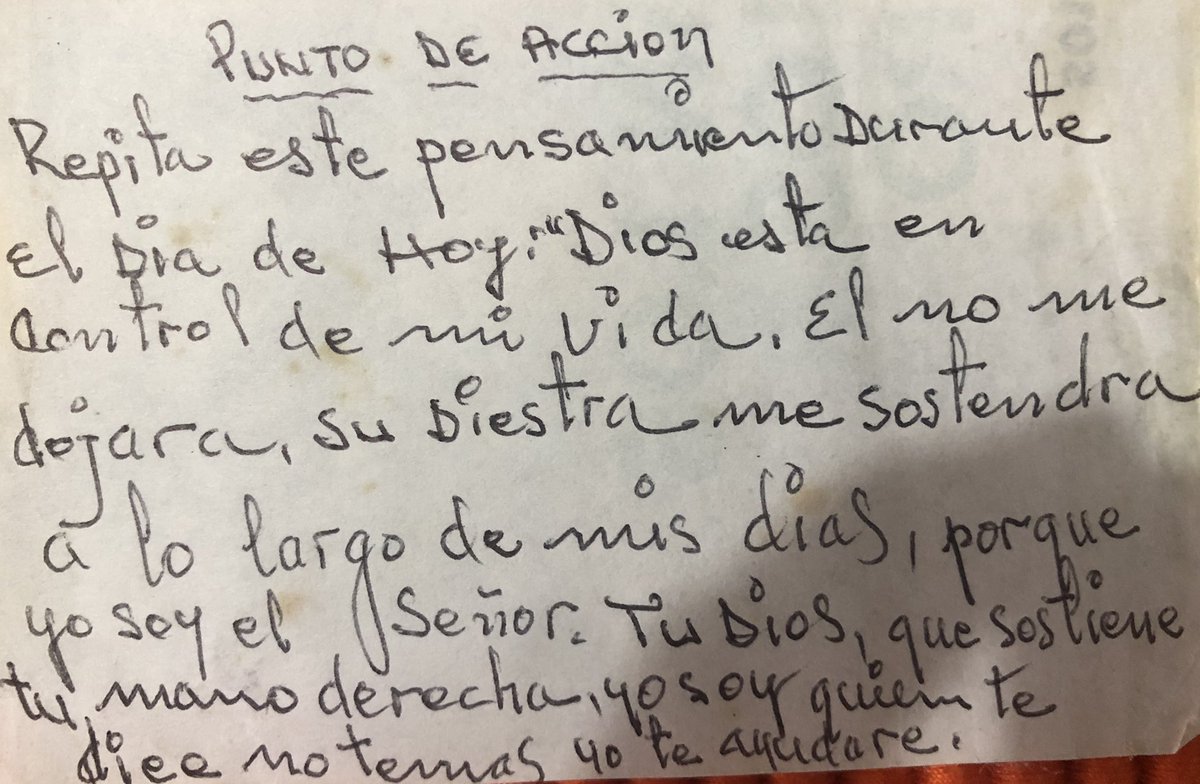 PUNTO DE ACCION
Repita este pensamiento Durante
El Dia de Hoy: "Dios esta en
control de mi vida. El no me
dejara, su Diestra me sostendra
a lo largo de mis dias, porque
yo soy el Señor. Tu Dios, que sostiene
tu mano derecha, yo soy quien te
dice no temas yo te ayudare.